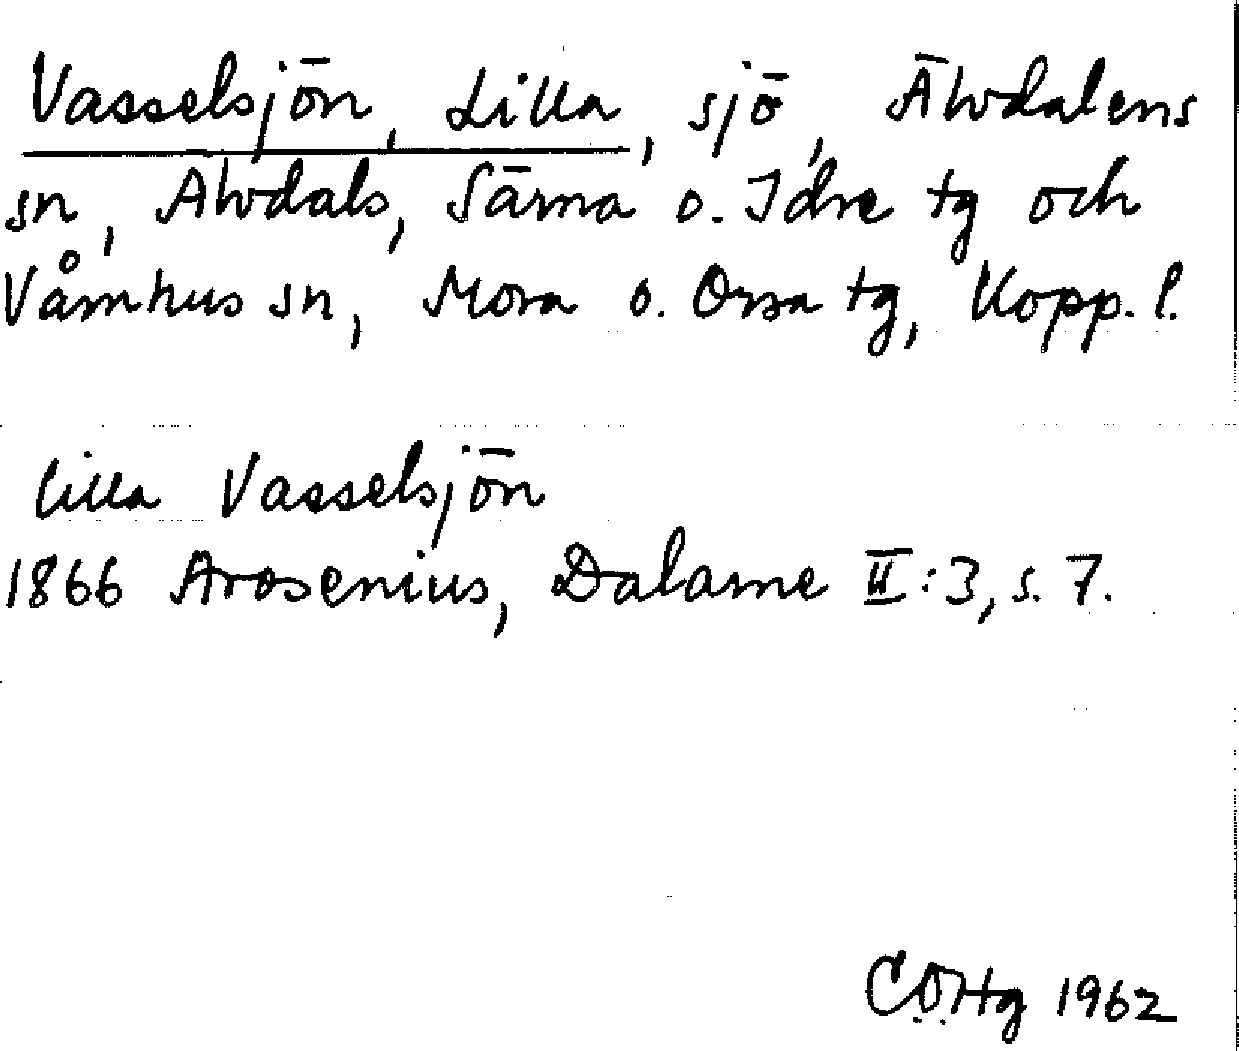 Vasselsjön, Lilla, sjö, Älvdalens
sn, Älvdals, Särna o. Idre tg och
Våmhus sn, Mora o. Orsa tg, Kopp. l.
lilla Vasselsjön
1866 Arosenius, Dalarne II:3, s. 7.
C.O.Hg 1962